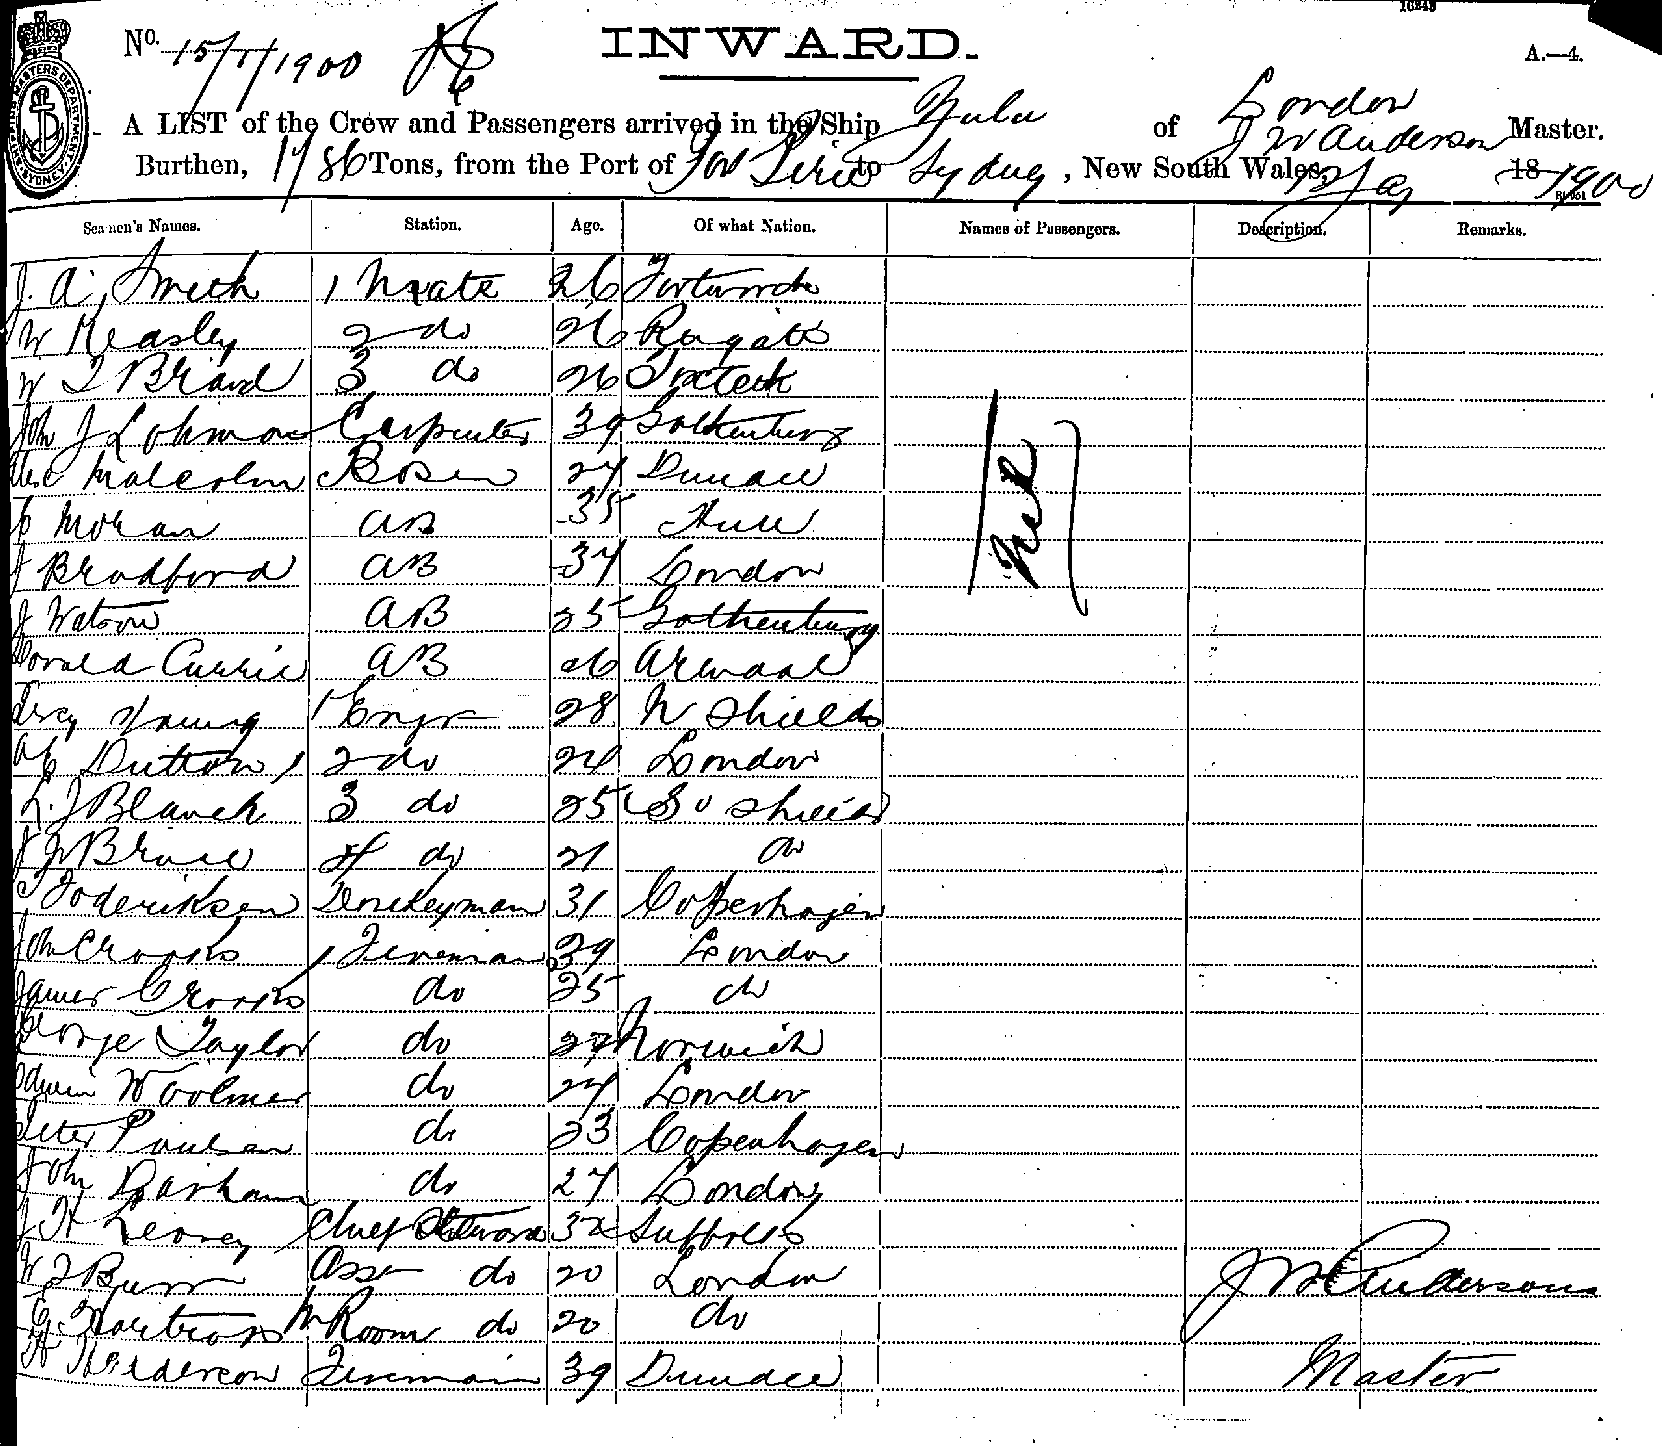 10248
No. 15/1/1900 INWARD. A.—4.
A LIST of the Crew and Passengers arrived in the Ship Zulu of London J W Anderson Master.
Burthen, 1786 Tons, from the Port of Port Pirie to Sydney, New South Wales, 18 1900
Seamen's Names. Station. Age. Of what Nation. Names of Passengers. Description. Remarks.
J. A. Smith 1 Mate 26
W Keasley 2 do 26 Reigate
W T Brand 3 do 26
John J Lohman Carpenter 39 Gothenburg
Alec Malcolm Bosen 24 Dundee
Moran AB 35 Hull
J Bradford AB 34 London
J Watson AB 25 Gothenburg
Donald Currie AB 26
Percy Young 1 Engr 28 N Shields
Dutton 2 do 24 London
L. J Blanch 3 do 25 So Shields
Bruce 4 do 21 do
Foderiksen Donkeyman 31 Copenhagen
John Crooks Fireman 39 London
James Crooks do 25 do
George Taylor do 27 Norwich
Edwin Woolmer do 24 London
Peter Poulsen do 23 Copenhagen
John Barham do 27 London
J H Leavey Chief Steward 32 Suffolk
W J Burr Asst do 20 London
M Room do 20 do
H Henderson Fireman 39 Dundee
Nil
J W Anderson
Master